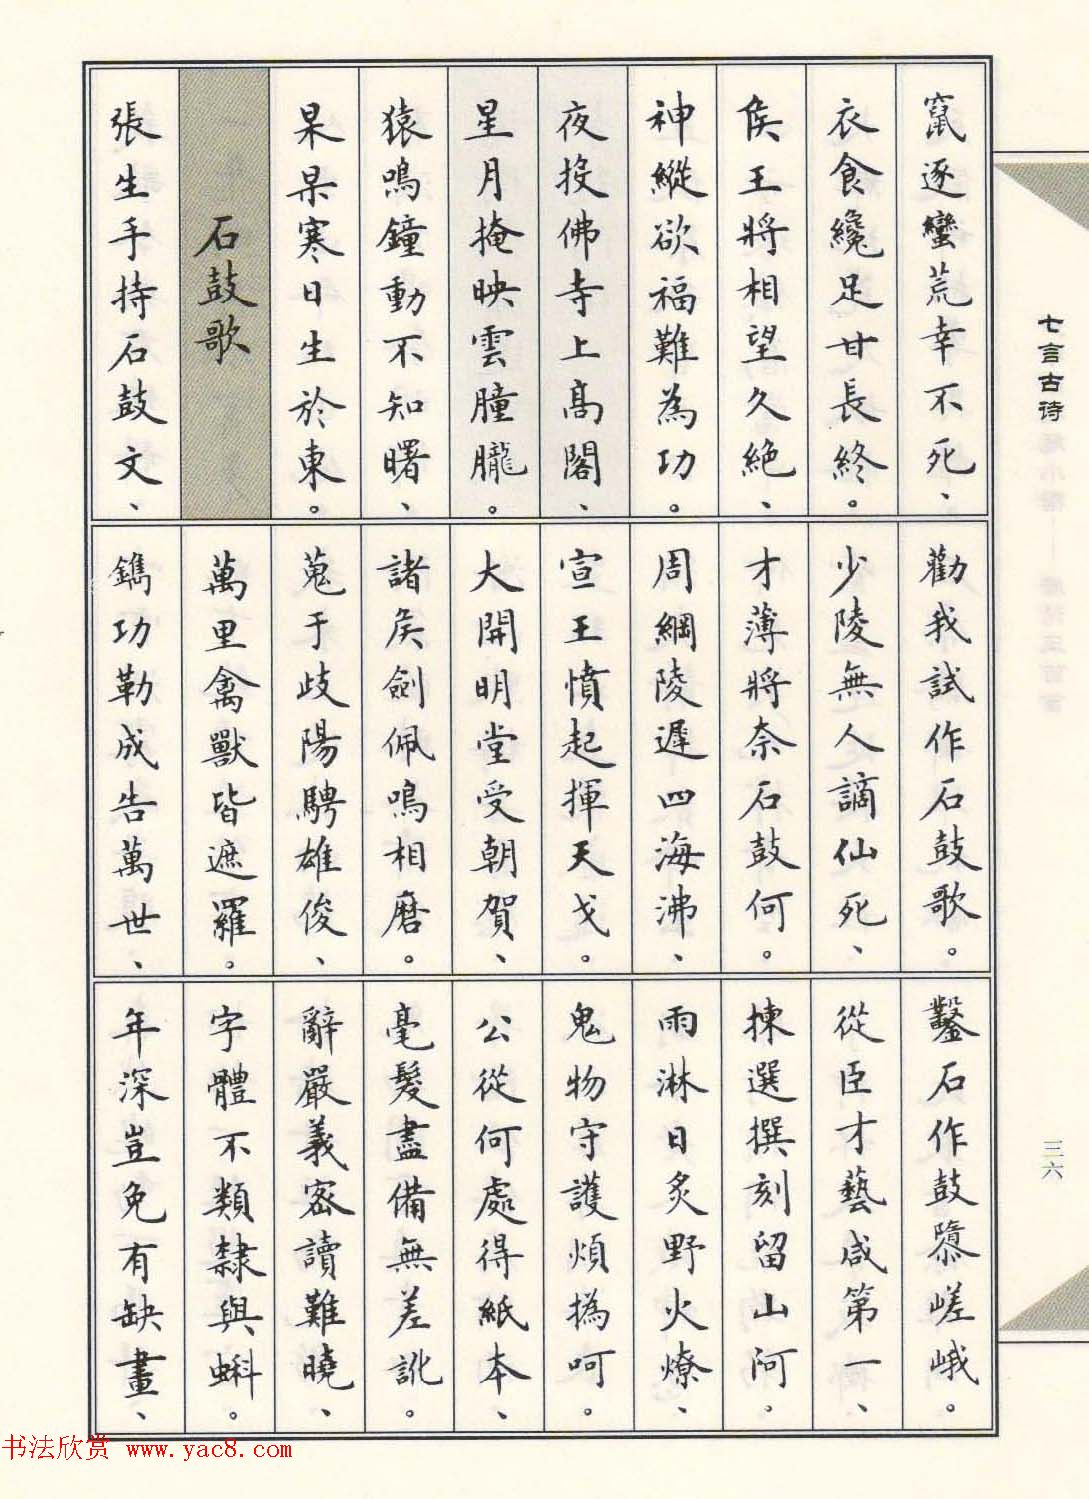 竄逐蠻荒幸不死、
衣食纔足甘長終。
侯王將相望久絶、
神縱欲福難為功。
夜投佛寺上高閣、
星月掩映雲朣朧。
猿鳴鐘動不知曙、
杲杲寒日生於東。
石鼓歌
張生手持石鼓文、
勸我試作石鼓歌。
少陵無人謫仙死、
才薄將奈石鼓何。
周綱陵遲四海沸、
宣王憤起揮天戈。
大開明堂受朝賀、
諸侯劍佩鳴相磨。
蒐于歧陽騁雄俊、
萬里禽獸皆遮羅。
鐫功勒成告萬世、
鑿石作鼓隳嵯峨。
從臣才藝咸第一、
揀選撰刻留山阿。
雨淋日炙野火燎、
鬼物守護煩撝呵。
公從何處得紙本、
毫髮盡備無差訛。
辭嚴義密讀難曉、
字體不類隸與蝌。
年深豈免有缺畫、
七言古诗
三六
书法欣赏 www.yac8.com